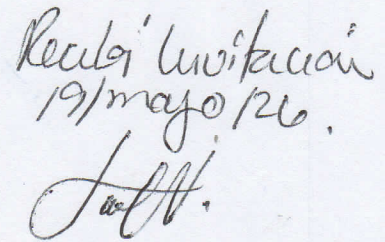 Recibí Invitación
19/mayo/26.